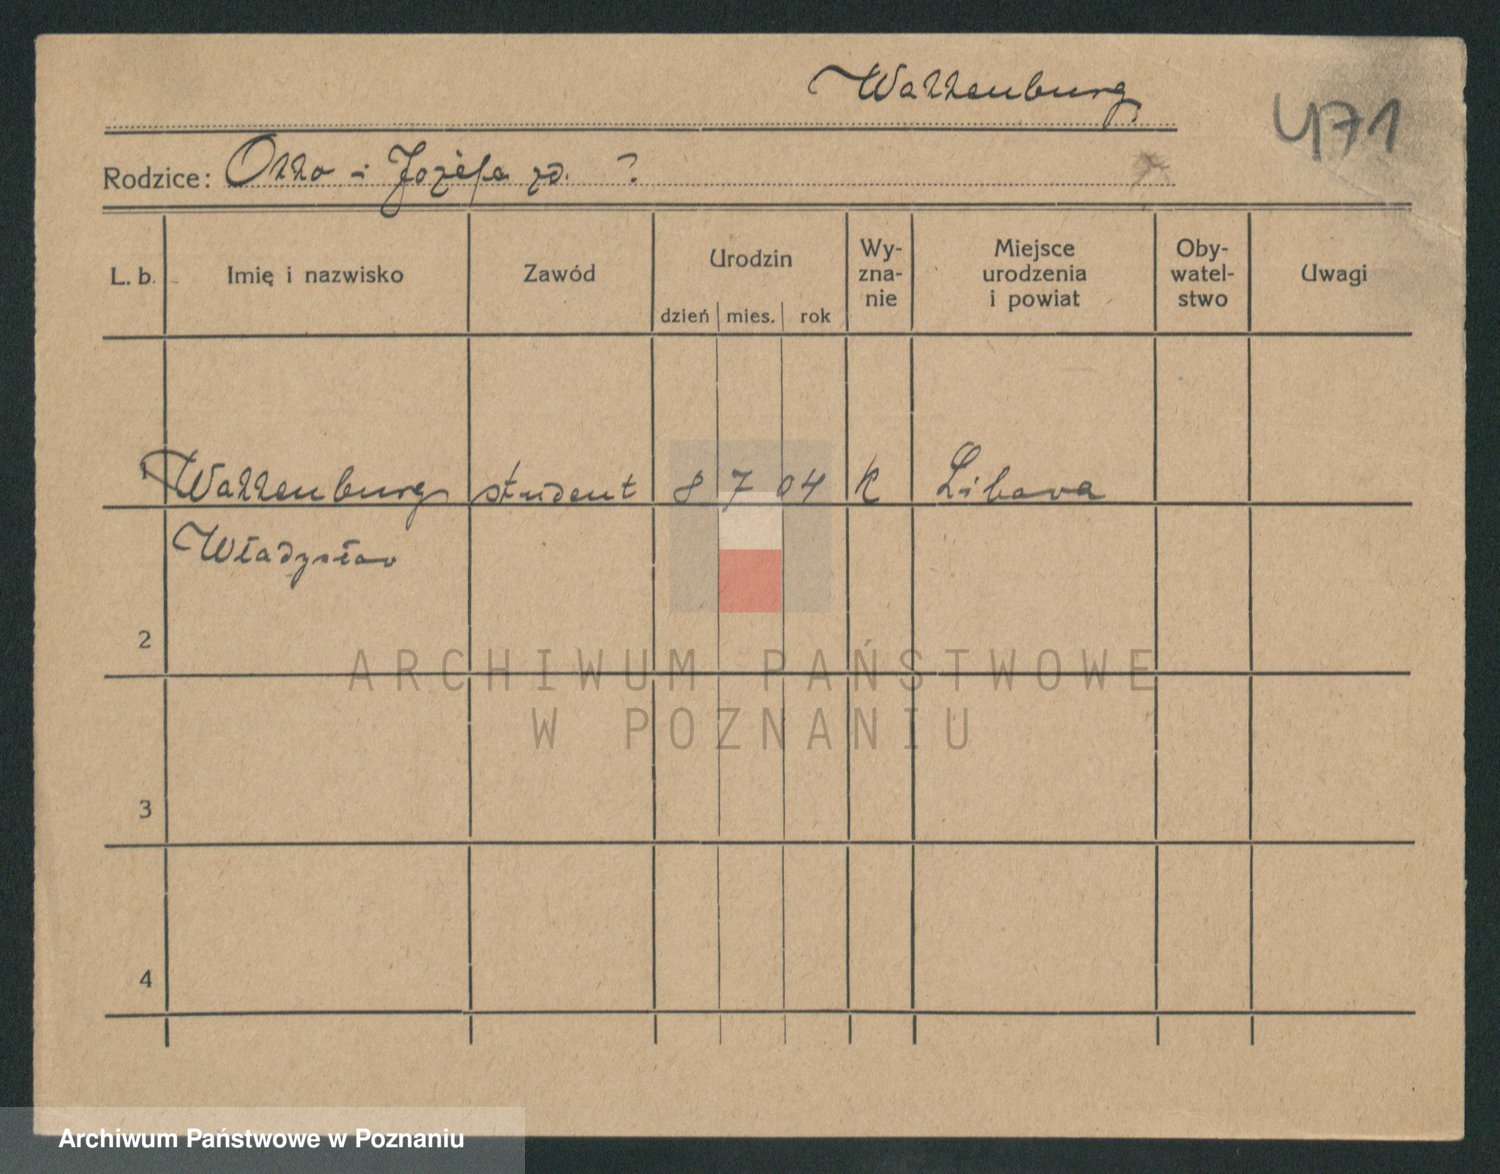 Wattenburg
471
Rodzice: Otto i Józefa zd. ?
L. b. Imię i nazwisko Zawód Urodzin dzień mies. rok Wy-zna-nie Miejsce urodzenia i powiat Oby-watel-stwo Uwagi
1 Wattenburg student 8 7 04 k Libava
Władysław
2
ARCHIWUM PAŃSTWOWE
W POZNANIU
3
4
Archiwum Państwowe w Poznaniu